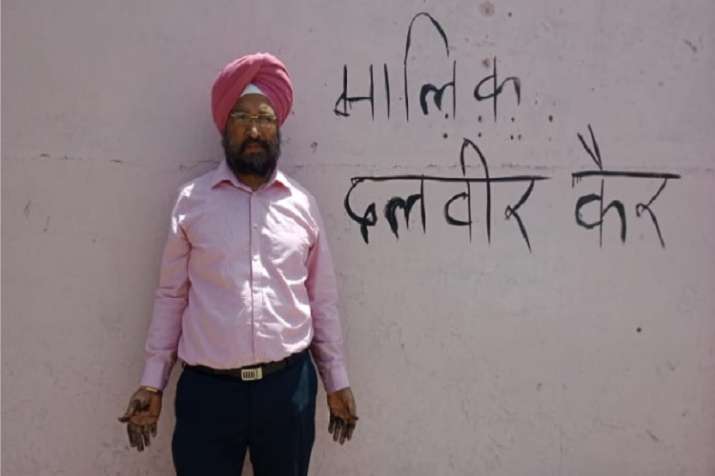 मालिक
दलवीर कैर